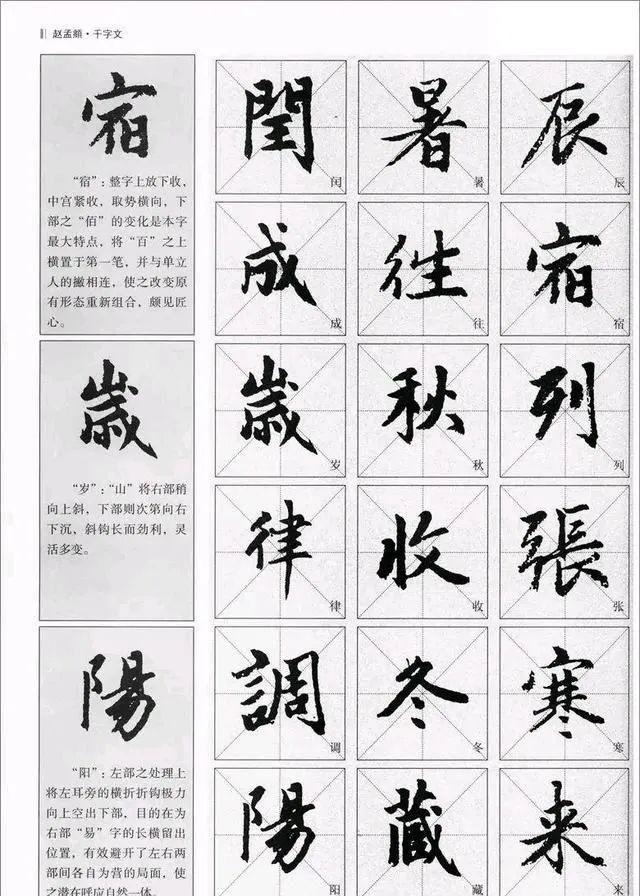 赵孟頫·千字文
宿
“宿”：整字上放下收，
中宫紧收，取势横向，下
部之“佰”的变化是本字
最大特点，将“百”之上
横置于第一笔，并与单立
人的撇相连，使之改变原
有形态重新组合，颇见匠
心。
歲
“岁”：“山”将右部稍
向上斜，下部则次第向右
下沉，斜钩长而劲利，灵
活多变。
陽
“阳”：左部之处理上
将左耳旁的横折折钩极力
向上空出下部，目的在为
右部“易”字的长横留出
位置，有效避开了左右两
部间各自为营的局面，使
之潜在呼应自然一体
辰 辰
宿 宿
列 列
張 张
寒 寒
来 来
暑 暑
往 往
秋 秋
收 收
冬 冬
藏 藏
閏 闰
成 成
歲 岁
律 律
調 调
陽 阳